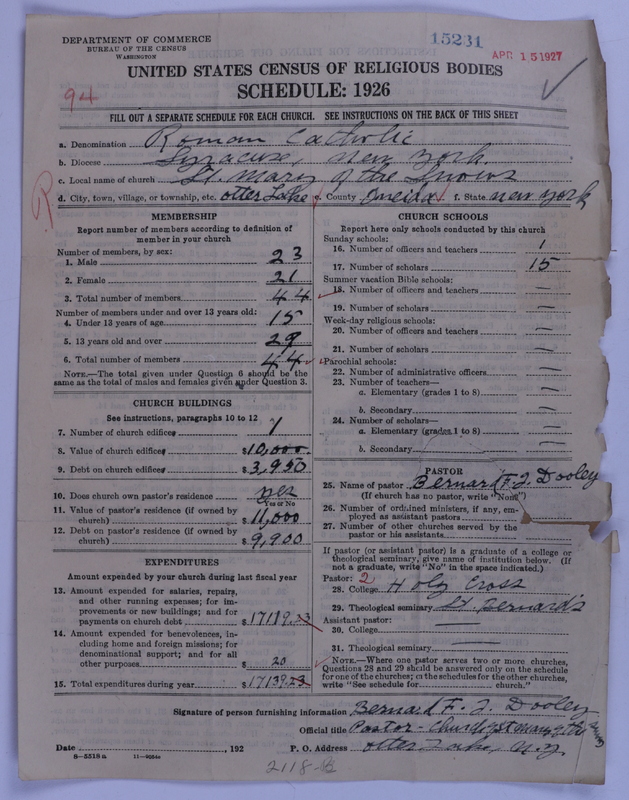 DEPARTMENT OF COMMERCE
BUREAU OF THE CENSUS
WASHINGTON
15231
APR 15 1927
UNITED STATES CENSUS OF RELIGIOUS BODIES
SCHEDULE: 1926
94
FILL OUT A SEPARATE SCHEDULE FOR EACH CHURCH. SEE INSTRUCTIONS ON THE BACK OF THIS SHEET
a. Denomination Roman Catholic
b. Diocese Syracuse, New York
c. Local name of church St. Mary of the Snows
d. City, town, village, or township, etc. Otter Lake e. County Oneida f. State New York
R
MEMBERSHIP
Report number of members according to definition of
member in your church
Number of members, by sex:
1. Male 23
2. Female 21
3. Total number of members 44
Number of members under and over 13 years old:
4. Under 13 years of age 15
5. 13 years old and over 29
6. Total number of members 44
NOTE.—The total given under Question 6 should be the
same as the total of males and females given under Question 3.
CHURCH BUILDINGS
See instructions, paragraphs 10 to 12
7. Number of church edifices 1
8. Value of church edifices $10,000.
9. Debt on church edifices $3,950
10. Does church own pastor's residence yes
Yes or No
11. Value of pastor's residence (if owned by
church) $11,000
12. Debt on pastor's residence (if owned by
church) $9,900
EXPENDITURES
Amount expended by your church during last fiscal year
13. Amount expended for salaries, repairs,
and other running expenses; for im-
provements or new buildings; and for
payments on church debt $17119.23
14. Amount expended for benevolences, in-
cluding home and foreign missions; for
denominational support; and for all
other purposes $20
15. Total expenditures during year $17139.23
CHURCH SCHOOLS
Report here only schools conducted by this church
Sunday schools:
16. Number of officers and teachers 1
17. Number of scholars 15
Summer vacation Bible schools:
18. Number of officers and teachers —
19. Number of scholars —
Week-day religious schools:
20. Number of officers and teachers —
21. Number of scholars —
Parochial schools:
22. Number of administrative officers —
23. Number of teachers—
a. Elementary (grades 1 to 8) —
b. Secondary —
24. Number of scholars—
a. Elementary (grades 1 to 8) —
b. Secondary —
PASTOR
25. Name of pastor Bernard F. J. Dooley
(If church has no pastor, write "None")
26. Number of ordained ministers, if any, em-
ployed as assistant pastors
27. Number of other churches served by the
pastor or his assistants
If pastor (or assistant pastor) is a graduate of a college or
theological seminary, give name of institution below. (If
not a graduate, write "No" in the space indicated.)
Pastor: 2
28. College Holy Cross
29. Theological seminary St. Bernard's
Assistant pastor:
30. College —
31. Theological seminary —
NOTE.—Where one pastor serves two or more churches,
Questions 28 and 29 should be answered only on the schedule
for one of the churches; on the schedules for the other churches,
write "See schedule for church."
Signature of person furnishing information Bernard F. J. Dooley
Official title Pastor - Church St Mary of the Snows
Date , 192 P. O. Address Otter Lake, N.Y.
8-5518a 11-9664a
2118-B